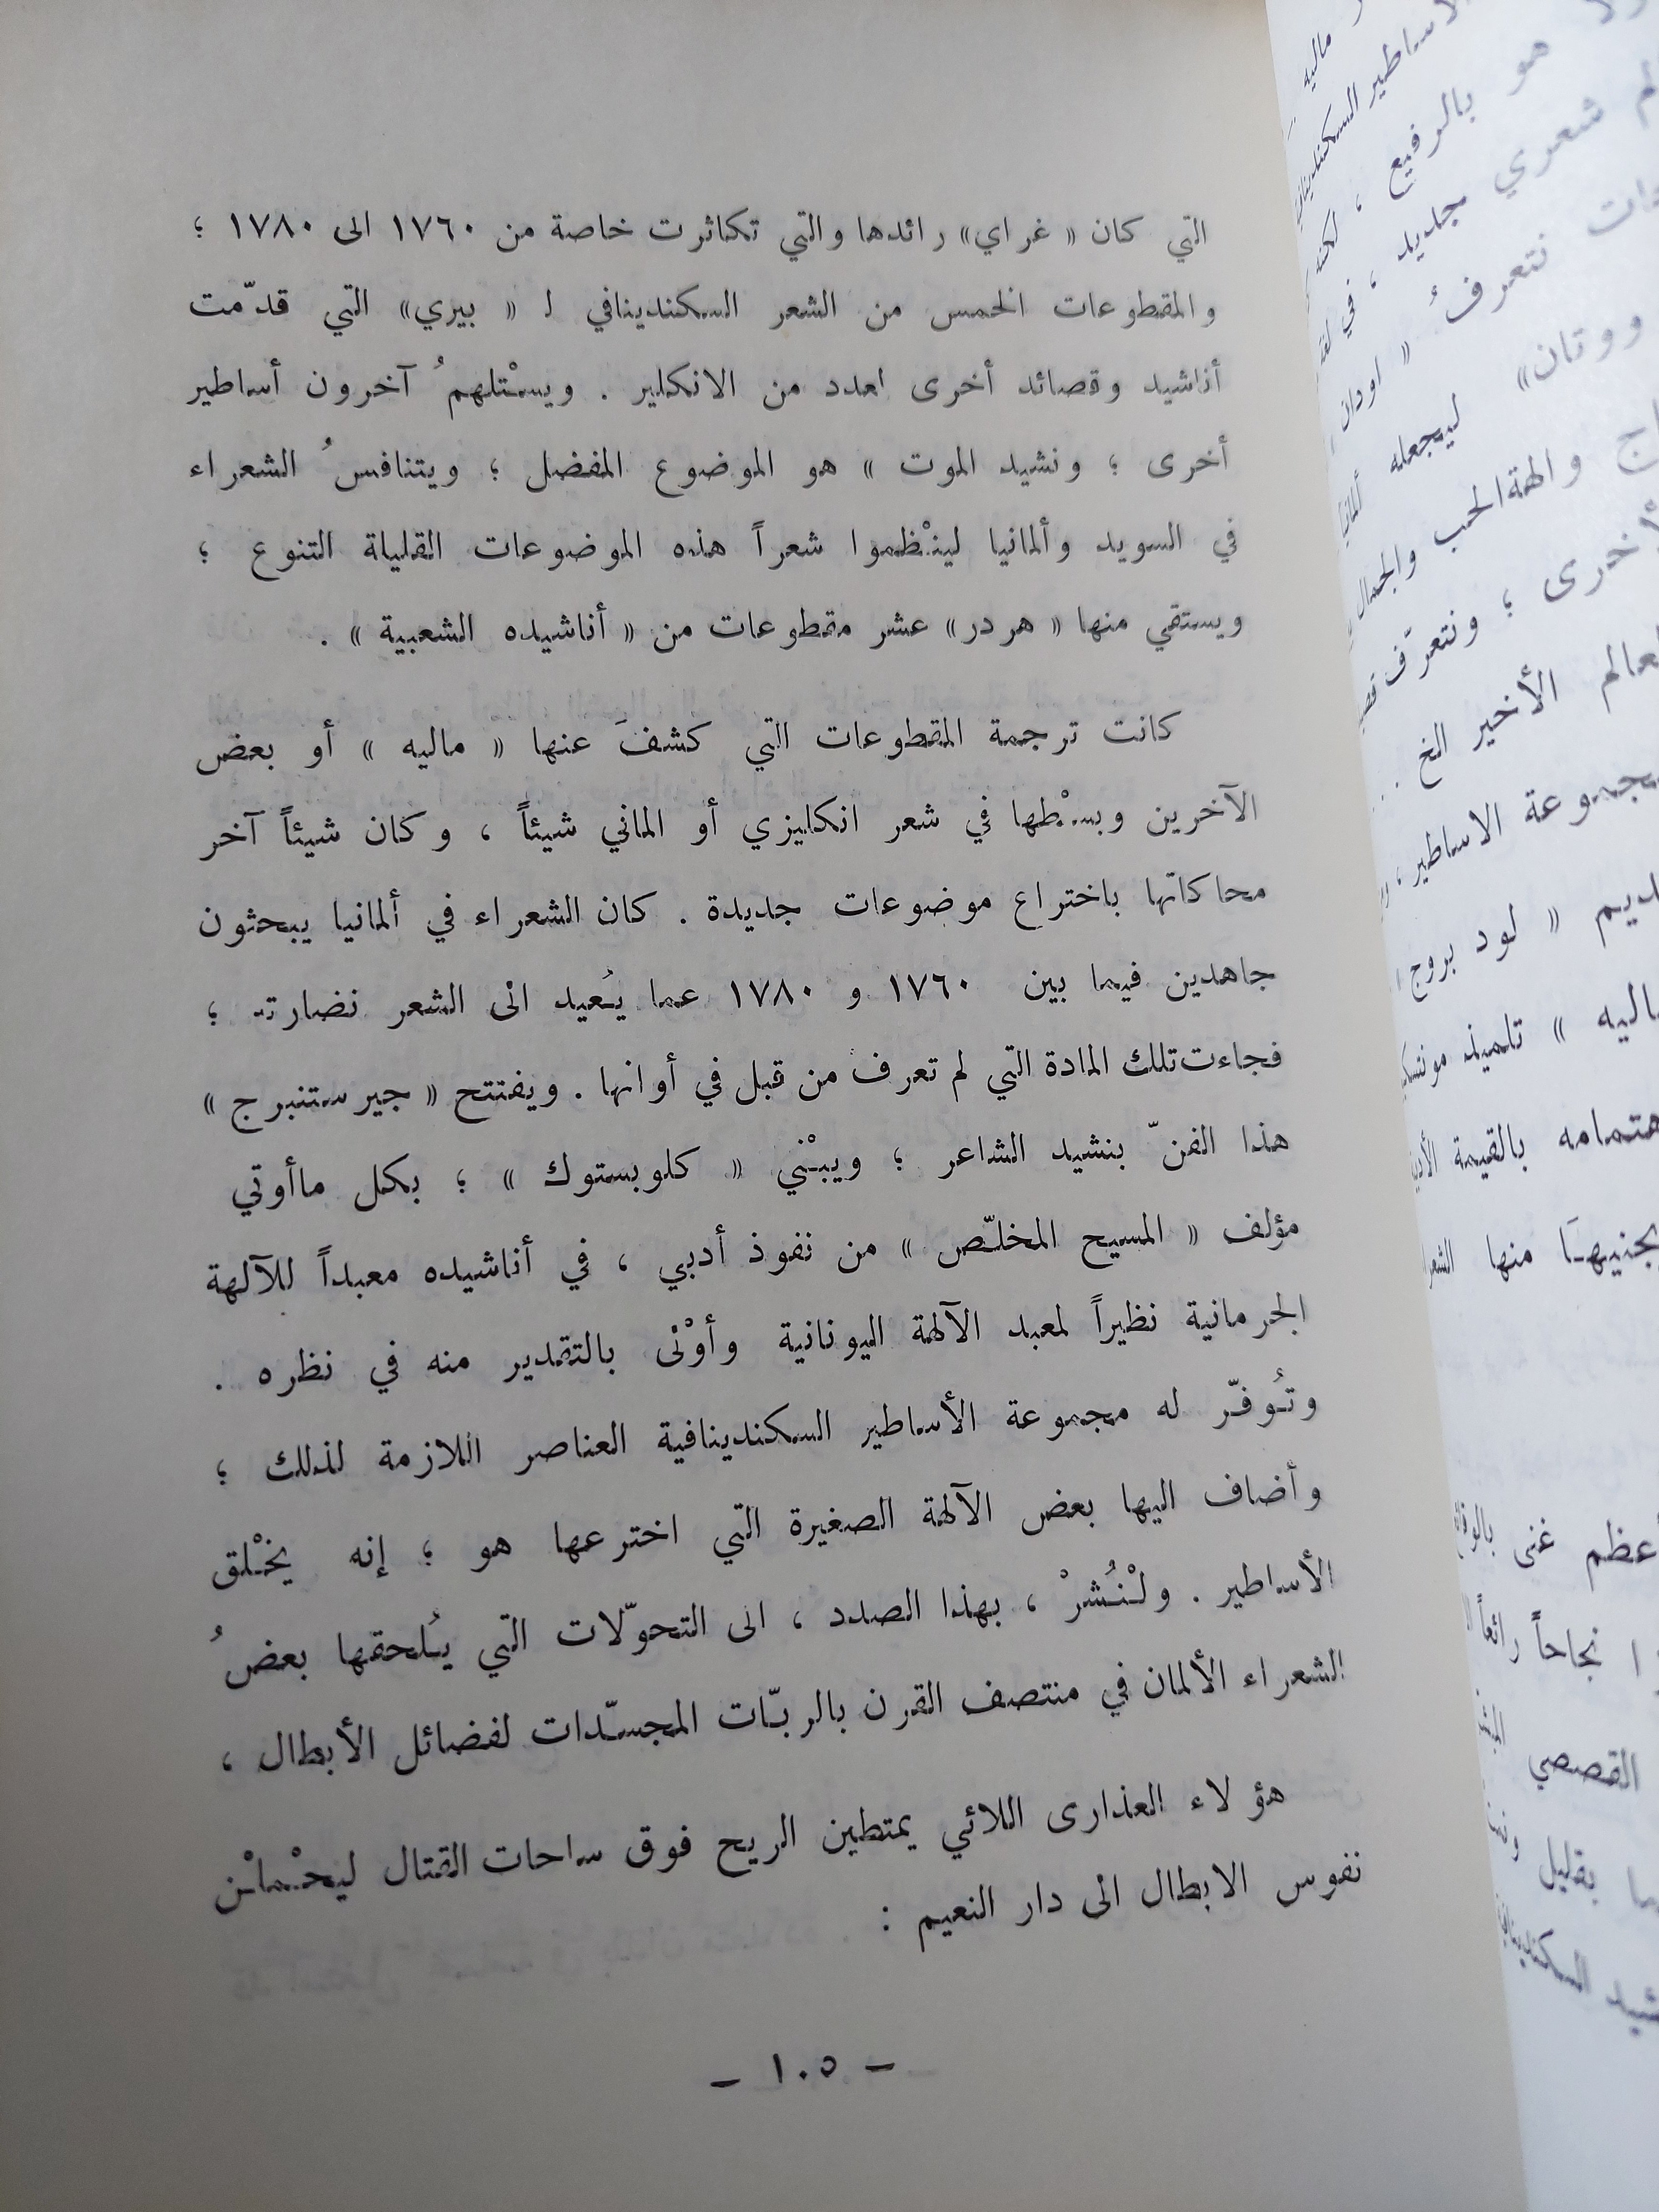 التي كان « غراي» رائدها والتي تكاثرت خاصة من ١٧٦٠ الى ١٧٨٠ ؛
والمقطوعات الخمس من الشعر السكندينافي لـ « بيري» التي قدّمت
أناشيد وقصائد أخرى لعدد من الانكليز . ويسْتلهمُ آخرون أساطير
أخرى ؛ ونشيد الموت » هو الموضوع المفضل ؛ ويتنافسُ الشعراء
في السويد وألمانيا لينْظموا شعراً هذه الموضوعات القليلة التنوع ؛
ويستقي منها « هردر» عشر مقطوعات من « أناشيده الشعبية » .
كانت ترجمة المقطوعات التي كشفَ عنها « ماليه » أو بعض
الآخرين وبسْطها في شعر انكليزي أو الماني شيئاً ، وكان شيئاً آخر
محاكاتها باختراع موضوعات جديدة . كان الشعراء في ألمانيا يبحثون
جاهدين فيما بين ١٧٦٠ و ١٧٨٠ عما يُعيد الى الشعر نضارته ؛
فجاءت تلك المادة التي لم تعرف من قبل في أوانها . ويفتتح « جيرستنبرج »
هذا الفنّ بنشيد الشاعر ؛ ويبْني « كلوبستوك » ؛ بكل ماأوتي
مؤلف « المسيح المخلّص » من نفوذ أدبي ، في أناشيده معبداً للآلهة
الجرمانية نظيراً لمعبد الآلهة اليونانية وأوْلى بالتقدير منه في نظره .
وتُوفّر له مجموعة الأساطير السكندينافية العناصر اللازمة لذلك ؛
وأضاف اليها بعض الآلهة الصغيرة التي اخترعها هو ؛ إنه يخْلق
الأساطير . ولْنُشرْ ، بهذا الصدد ، الى التحوّلات التي يُلحقها بعضُ
الشعراء الألمان في منتصف القرن بالربّات المجسّدات لفضائل الأبطال ،
هؤلاء العذارى اللائي يمتطين الريح فوق ساحات القتال ليحْملْن
نفوس الابطال الى دار النعيم :
– ١٠٥ –
ماليه
الأساطير السكندينافية
هو بالرفيع ، لكنه
شعري جديد ، في لغة
نتعرفُ « اودان
ووتان» ليجعله ألمانيا
والهة الحب والجمال
أخرى ؛ ونتعرّف
العالم الأخير الخ ...
مجموعة الاساطير ،
« لود بروج
ماليه » تلميذ
اهتمامه بالقيمة
منها
أعظم غنى
نجاحاً رائعاً
القصصي
بقليل
السكندينافية